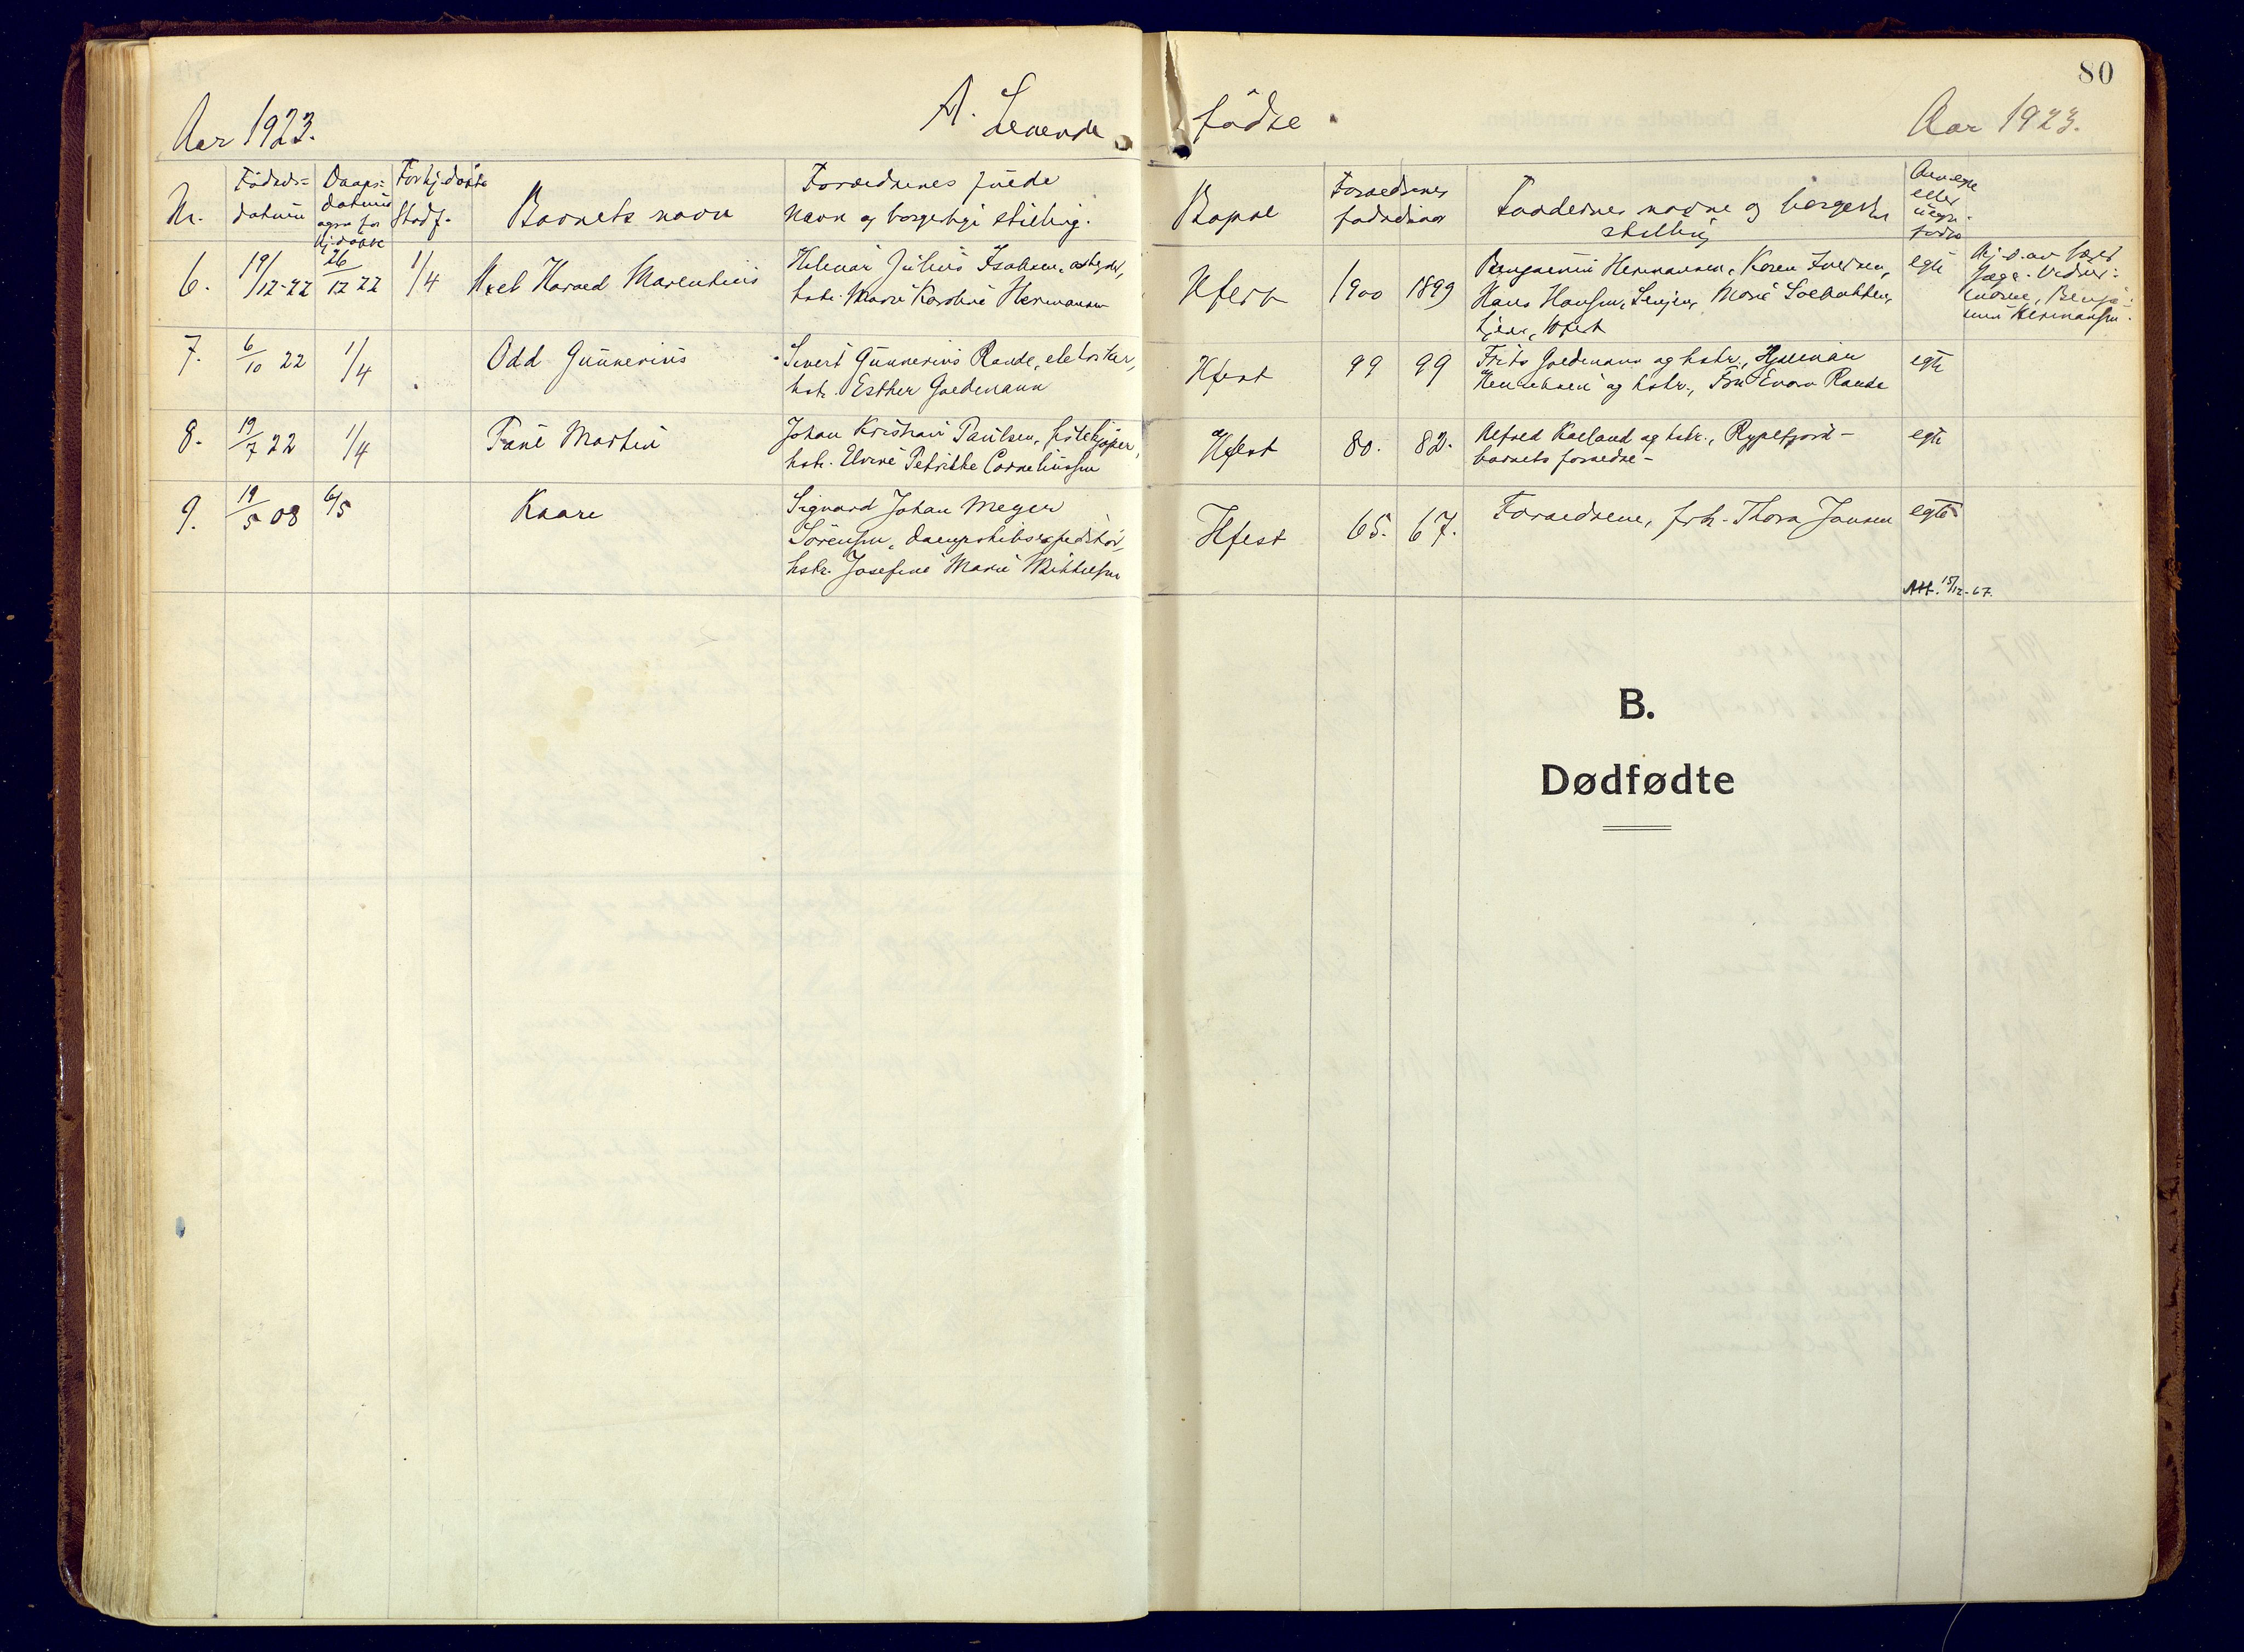 80
Aar 1923.
A. Levende
fødte.
Aar 1923.
Nr.
Fødsels=
datum
Daaps=
datum
ogsaa for
hj.døpte
For hj.døpte
Stadf.
Barnets navn
Forældrenes fulde
navn og borgerlige stilling.
Bopæl
Forældrenes
fødselsaar
Faddernes navne og borgerl.
stilling
Om egte
eller
uegte
født
6.
19/12-22
26/12 22
1/4
Axel Harald Marentius
Hilmar Julius Isaksen, arbeider,
hstr. Marie Karoline Hermansen
Hfest
1900
1899
Benjamin Hermansen, Karen Iversen,
Hans Hansen, Senjen, Marie
Hfest
egte
Hj.d. av
Benja=
min Hermansen.
7.
6/10 22
1/4
Odd Gunnerius
Sivert Gunnerius Rande,
hstr. Esther Goldmann
Hfest
99
99
Frits Goldmann og hstr., Hjalmar
Henriksen og hstr., Rande
egte
8.
19/7 22
1/4
Martin
Johan Kristian Paulsen,
hstr. Petrikke Corneliussen
Hfest
80.
82.
Alfred Kaeland og hstr., Rypefjord -
barnets forældre -
egte
9.
19/5 08
6/5
Kaare
Sigvard Johan Meyer
Sørensen, dampskibsexpeditør,
hstr. Josefine Marie Mikkelsen
Hfest
65.
67.
Forældrene, frk. Thora Jansen
egte
Att. 15/12-67.
B.
Dødfødte